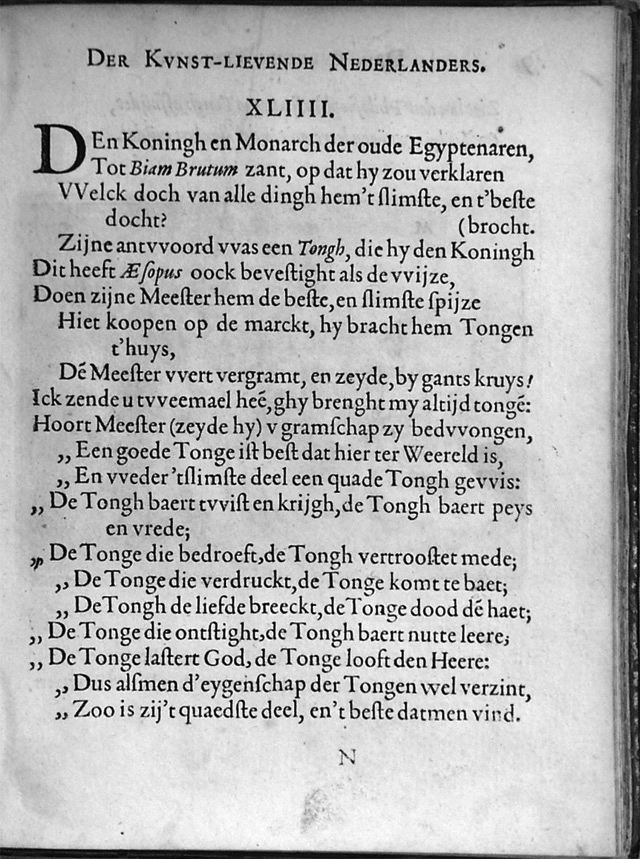 DER KVNST-LIEVENDE NEDERLANDERS.
XLIIII.
DEn Koningh en Monarch der oude Egyptenaren,
Tot Biam Brutum zant, op dat hy zou verklaren
VVelck doch van alle dingh hem't ſlimſte, en t'beſte
docht? (brocht.
Zijne antvvoord vvas een Tongh, die hy den Koningh
Dit heeft Æſopus oock beveſtight als de vvijze,
Doen zijne Meeſter hem de beſte, en ſlimſte ſpijze
Hiet koopen op de marckt, hy bracht hem Tongen
t'huys,
Dé Meeſter vvert vergramt, en zeyde, by gants kruys!
Ick zende u tvveemael heé, ghy brenght my altijd tongé:
Hoort Meeſter (zeyde hy) v gramſchap zy bedvvongen,
,, Een goede Tonge iſt beſt dat hier ter Weereld is,
,, En vveder 'tſlimſte deel een quade Tongh gevvis:
,, De Tongh baert tvviſt en krijgh, de Tongh baert peys
en vrede;
,, De Tonge die bedroeft, de Tongh vertrooſtet mede;
,, De Tonge die verdruckt, de Tonge komt te baet;
,, De Tongh de liefde breeckt, de Tonge dood dé haet;
,, De Tonge die ontſtight, de Tongh baert nutte leere;
,, De Tonge laſtert God, de Tonge looft den Heere:
,, Dus alſmen d'eygenſchap der Tongen wel verzint,
,, Zoo is zij't quaedſte deel, en't beſte datmen vind.
N